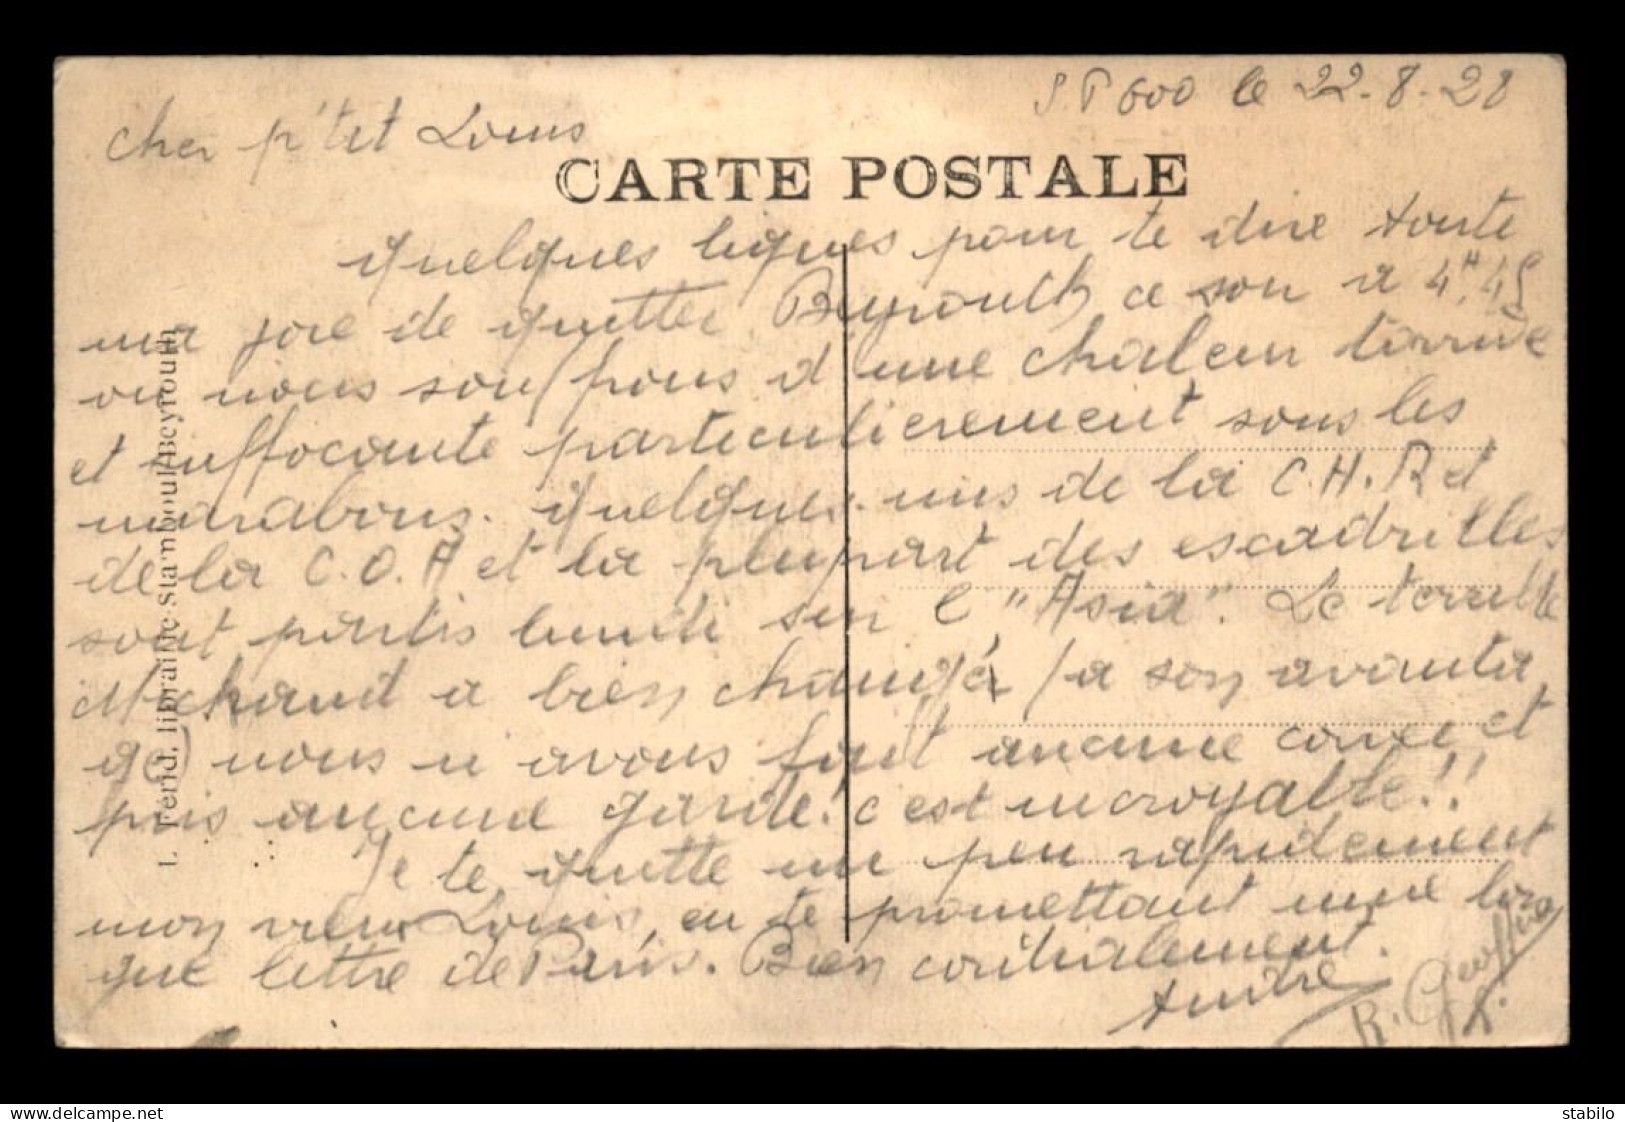 S.P 600 le 22-8-28
Cher p'tit Louis
CARTE POSTALE
Quelques lignes pour te dire toute
ma joie de quitter Beyrouth ce soir à 4H.45
où nous souffrons d'une chaleur torride
et suffocante particulièrement sous les
marabous. Quelques-uns de la C.H.R et
de la C.O.A et la plupart des escadrilles
sont partis lundi sur l'"Asia". Le terrible
Michaud a bien changé (à son avanta
ge) nous n'avons fait aucune corvée et
pris aucune garde! c'est incroyable!!
Je te quitte un peu rapidement
mon vieux Louis, en te promettant une lon
gue lettre de Paris. Bien cordialement.
André
R. Geoffroy
L. Férid, librairie Stamboul Beyrouth
stabilo